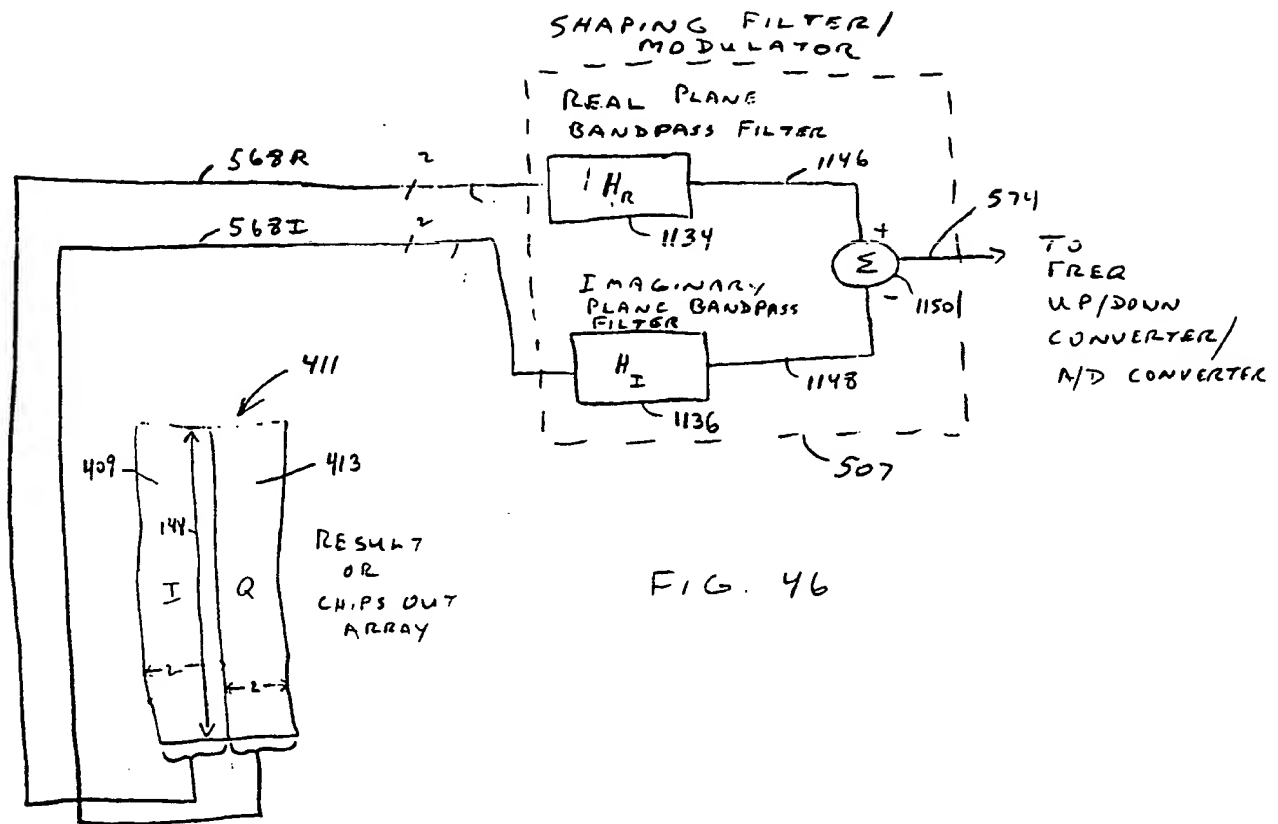 SHAPING FILTER/
MODULATOR
REAL PLANE
BANDPASS FILTER
568R
2
HR
1134
1146
568I
2
+
Σ
-
1150
574
TO
FREQ
UP/DOWN
CONVERTER/
A/D CONVERTER
IMAGINARY
PLANE BANDPASS
FILTER
HI
1136
1148
507
411
409
413
144
I
Q
2
2
RESULT
OR
CHIPS OUT
ARRAY
FIG. 46